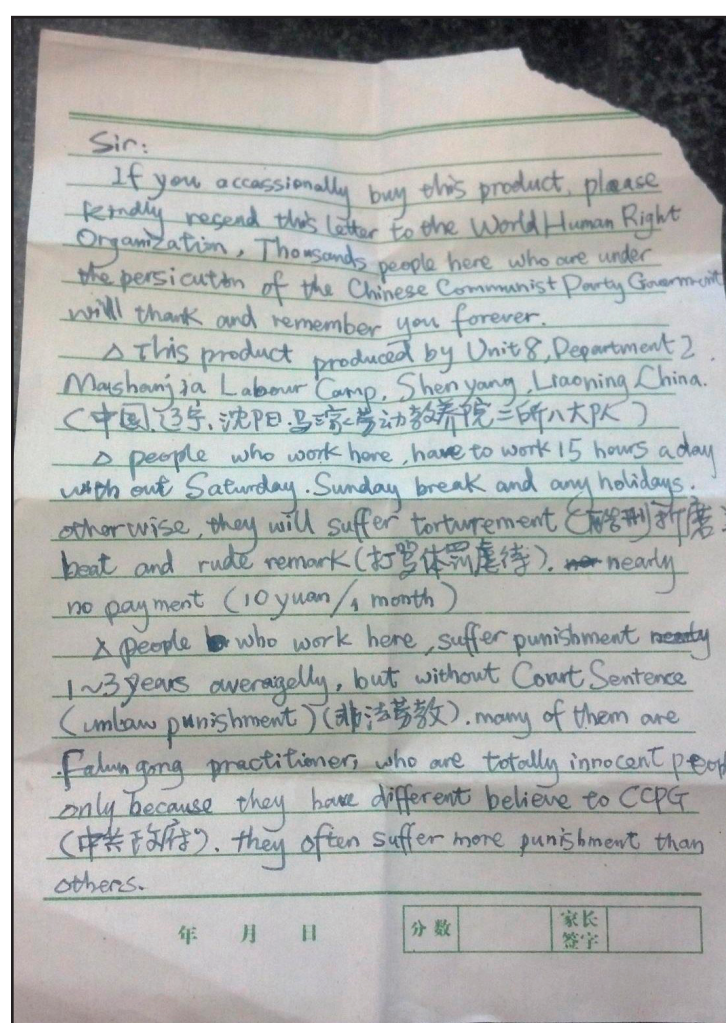 Sir:
If you accassionally buy this product, please
kindly resend this letter to the World Human Right
Organization, Thousands people here who are under
the persicution of the Chinese Communist Party Goverment
will thank and remember you forever.
△ This product produced by Unit 8, Department 2
Mashanjia Labour Camp, Shenyang, Liaoning China.
(中国.辽宁.沈阳.马三家劳动教养院二所八大队)
△ people who work here, have to work 15 hours a day
with out Saturday. Sunday break and any holidays.
otherwise, they will suffer torturement (酷刑折磨)
beat and rude remark (打骂体罚虐待). nearly
no payment (10 yuan/1 month)
△ people who work here, suffer punishment
1~3 years averagelly, but without Court Sentence
(unlaw punishment) (非法劳教). many of them are
Falun gong practitioner, who are totally innocent peop
only because they have different believe to CCPG
(中共政府). they often suffer more punishment than
others.
年 月 日 分数 家长签字